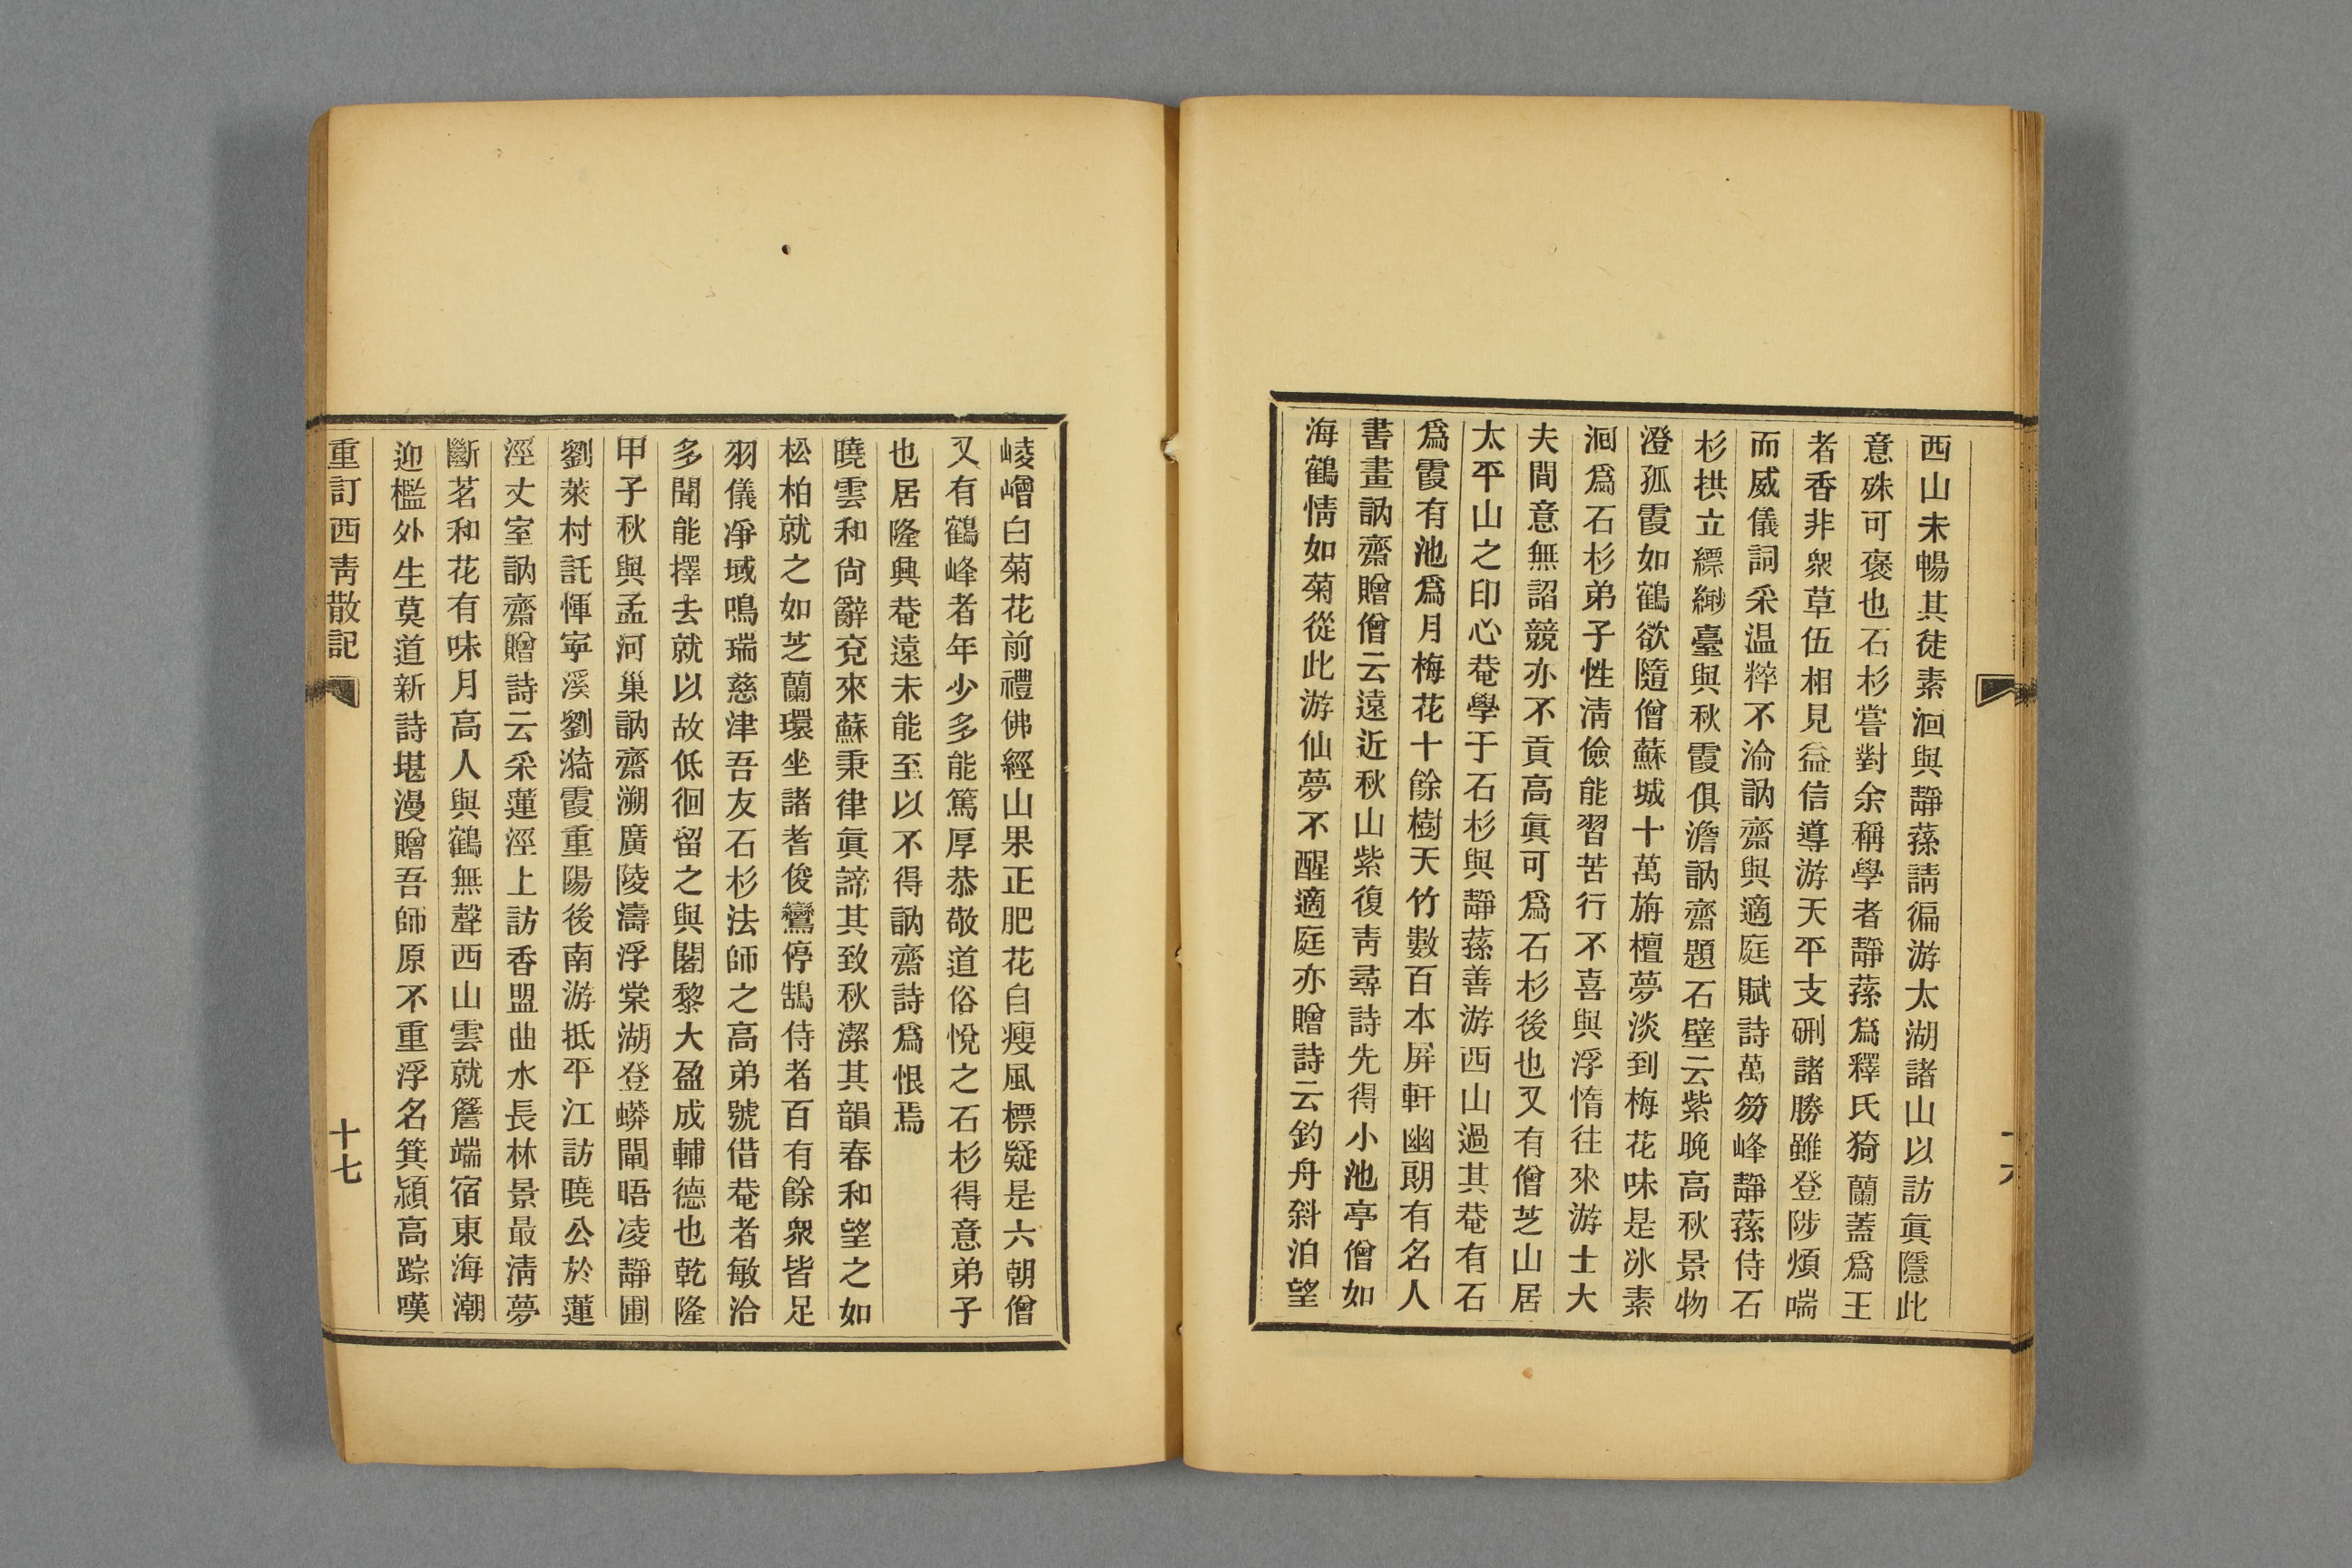 西山未暢其徒素洄與靜蓀請徧游太湖諸山以訪眞隱此
意殊可褒也石杉嘗對余稱學者靜蓀爲釋氏猗蘭蓋爲王
者香非衆草伍相見益信導游天平支硎諸勝雖登陟煩喘
而威儀詞采温粹不渝訥齋與適庭賦詩萬笏峰靜蓀侍石
杉拱立縹緲臺與秋霞俱澹訥齋題石壁云紫晚高秋景物
澄孤霞如鶴欲隨僧蘇城十萬旃檀夢淡到梅花味是冰素
洄爲石杉弟子性淸儉能習苦行不喜與浮惰往來游士大
夫間意無諂競亦不貢高眞可爲石杉後也又有僧芝山居
太平山之印心菴學于石杉與靜蓀善游西山過其菴有石
爲霞有池爲月梅花十餘樹天竹數百本屛軒幽朗有名人
書畫訥齋贈僧云遠遠近秋山紫復靑尋詩先得小池亭僧如
海鶴情如菊從此游仙夢不醒適庭亦贈詩云釣舟斜泊望
崚嶒白菊花前禮佛經山果正肥花自瘦風標疑是六朝僧
又有鶴峰者年少多能篤厚恭敬道俗悅之石杉得意弟子
也居隆興菴遠未能至以不得訥齋詩爲恨焉
曉雲和尙辭兗來蘇秉律眞諦其致秋潔其韻春和望之如
松柏就之如芝蘭環坐諸耆俊鸞停鵠侍者百有餘衆皆足
羽儀凈域鳴瑞慈津吾友石杉法師之高弟號借菴者敏洽
多聞能擇去就以故低徊留之與闍黎大盈成輔德也乾隆
甲子秋與孟河巢訥齋溯廣陵濤浮棠湖登蟒閘晤凌靜圃
劉萊村託惲寧溪劉漪霞重陽後南游抵平江訪曉公於蓮
涇丈室訥齋贈詩云采蓮涇上訪香盟曲水長林景最淸夢
斷茗和花有味月高人與鶴無聲西山雲就簷端宿東海潮
迎檻外生莫道新詩堪漫贈吾師原不重浮名箕潁高踪嘆
重訂西靑散記
十七